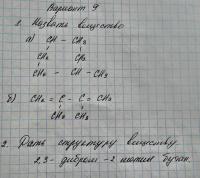 Вариант 9
1. Назвать вещество
а) CH - CH₃
CH₂
CH₂ - CH - CH₃
б) CH₂ = C - C = CH₂
CH₃ CH₃
2. Дать структуру веществу
2,3 - дибром - 2 - метил бутан.